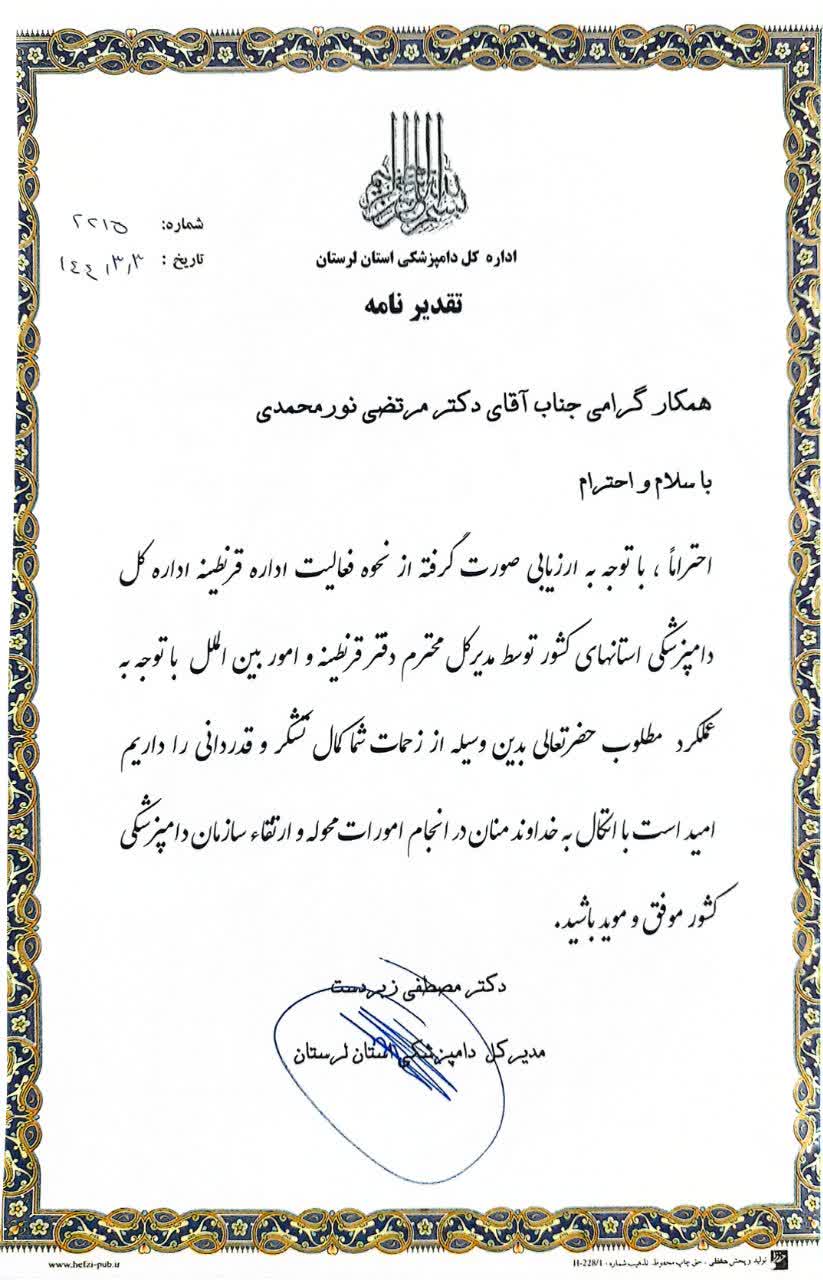 بسم الله الرحمن الرحیم
شماره: ۲۲۱۵
تاریخ:
اداره کل دامپزشکی استان لرستان
تقدیر نامه
همکار گرامی جناب آقای دکتر مرتضی نورمحمدی
با سلام و احترام
احتراماً ، با توجه به ارزیابی صورت گرفته از نحوه فعالیت اداره قرنطینه اداره کل
دامپزشکی استانهای کشور توسط مدیرکل محترم دفتر قرنطینه و امور بین الملل با توجه به
عملکرد مطلوب حضرتعالی بدین وسیله از زحمات شما کمال تشکر و قدردانی را داریم
امید است با اتکال به خداوند منان در انجام امورات محوله و ارتقاء سازمان دامپزشکی
کشور موفق و موید باشید.
دکتر مصطفی زبردست
مدیرکل دامپزشکی استان لرستان
تولید و پخش حفظی . حق چاپ محفوظ. تذهیب شماره : H-228/1
www.hefzi-pub.ir